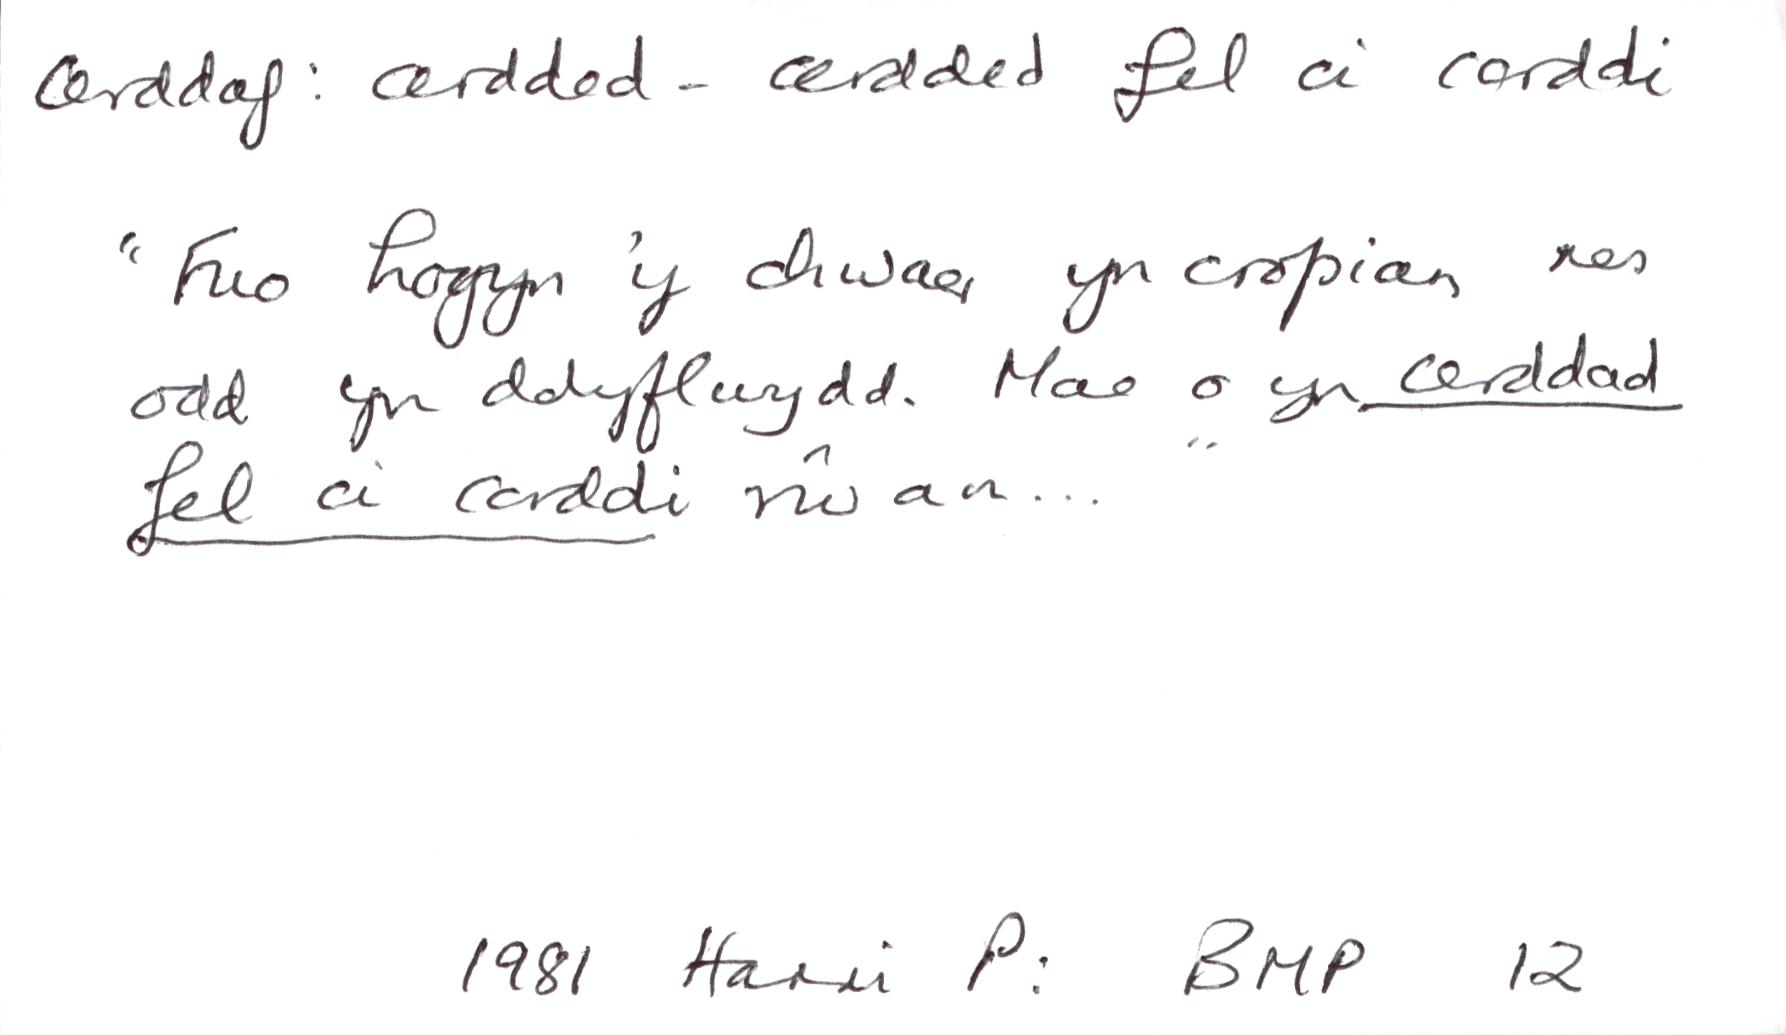 Cerddaf: cerdded - cerdded fel ci carddi
"Fuo hogyn 'y chwaer yn cropian nes
odd yn ddyflwydd. Mae o yn cerddad
fel ci carddi rŵan..."
1981 Harri P: BMP 12